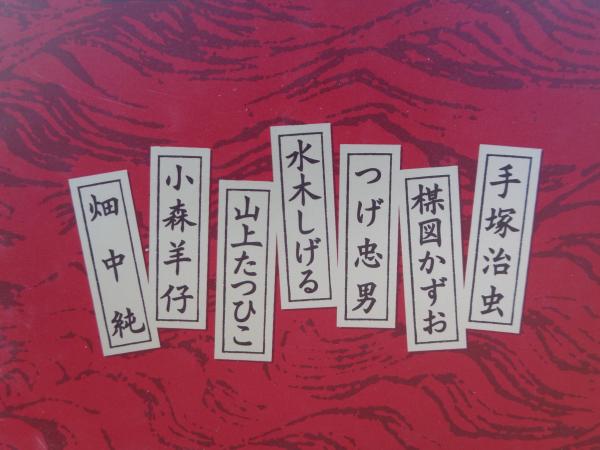 手塚治虫
楳図かずお
つげ忠男
水木しげる
山上たつひこ
小森羊仔
畑中純